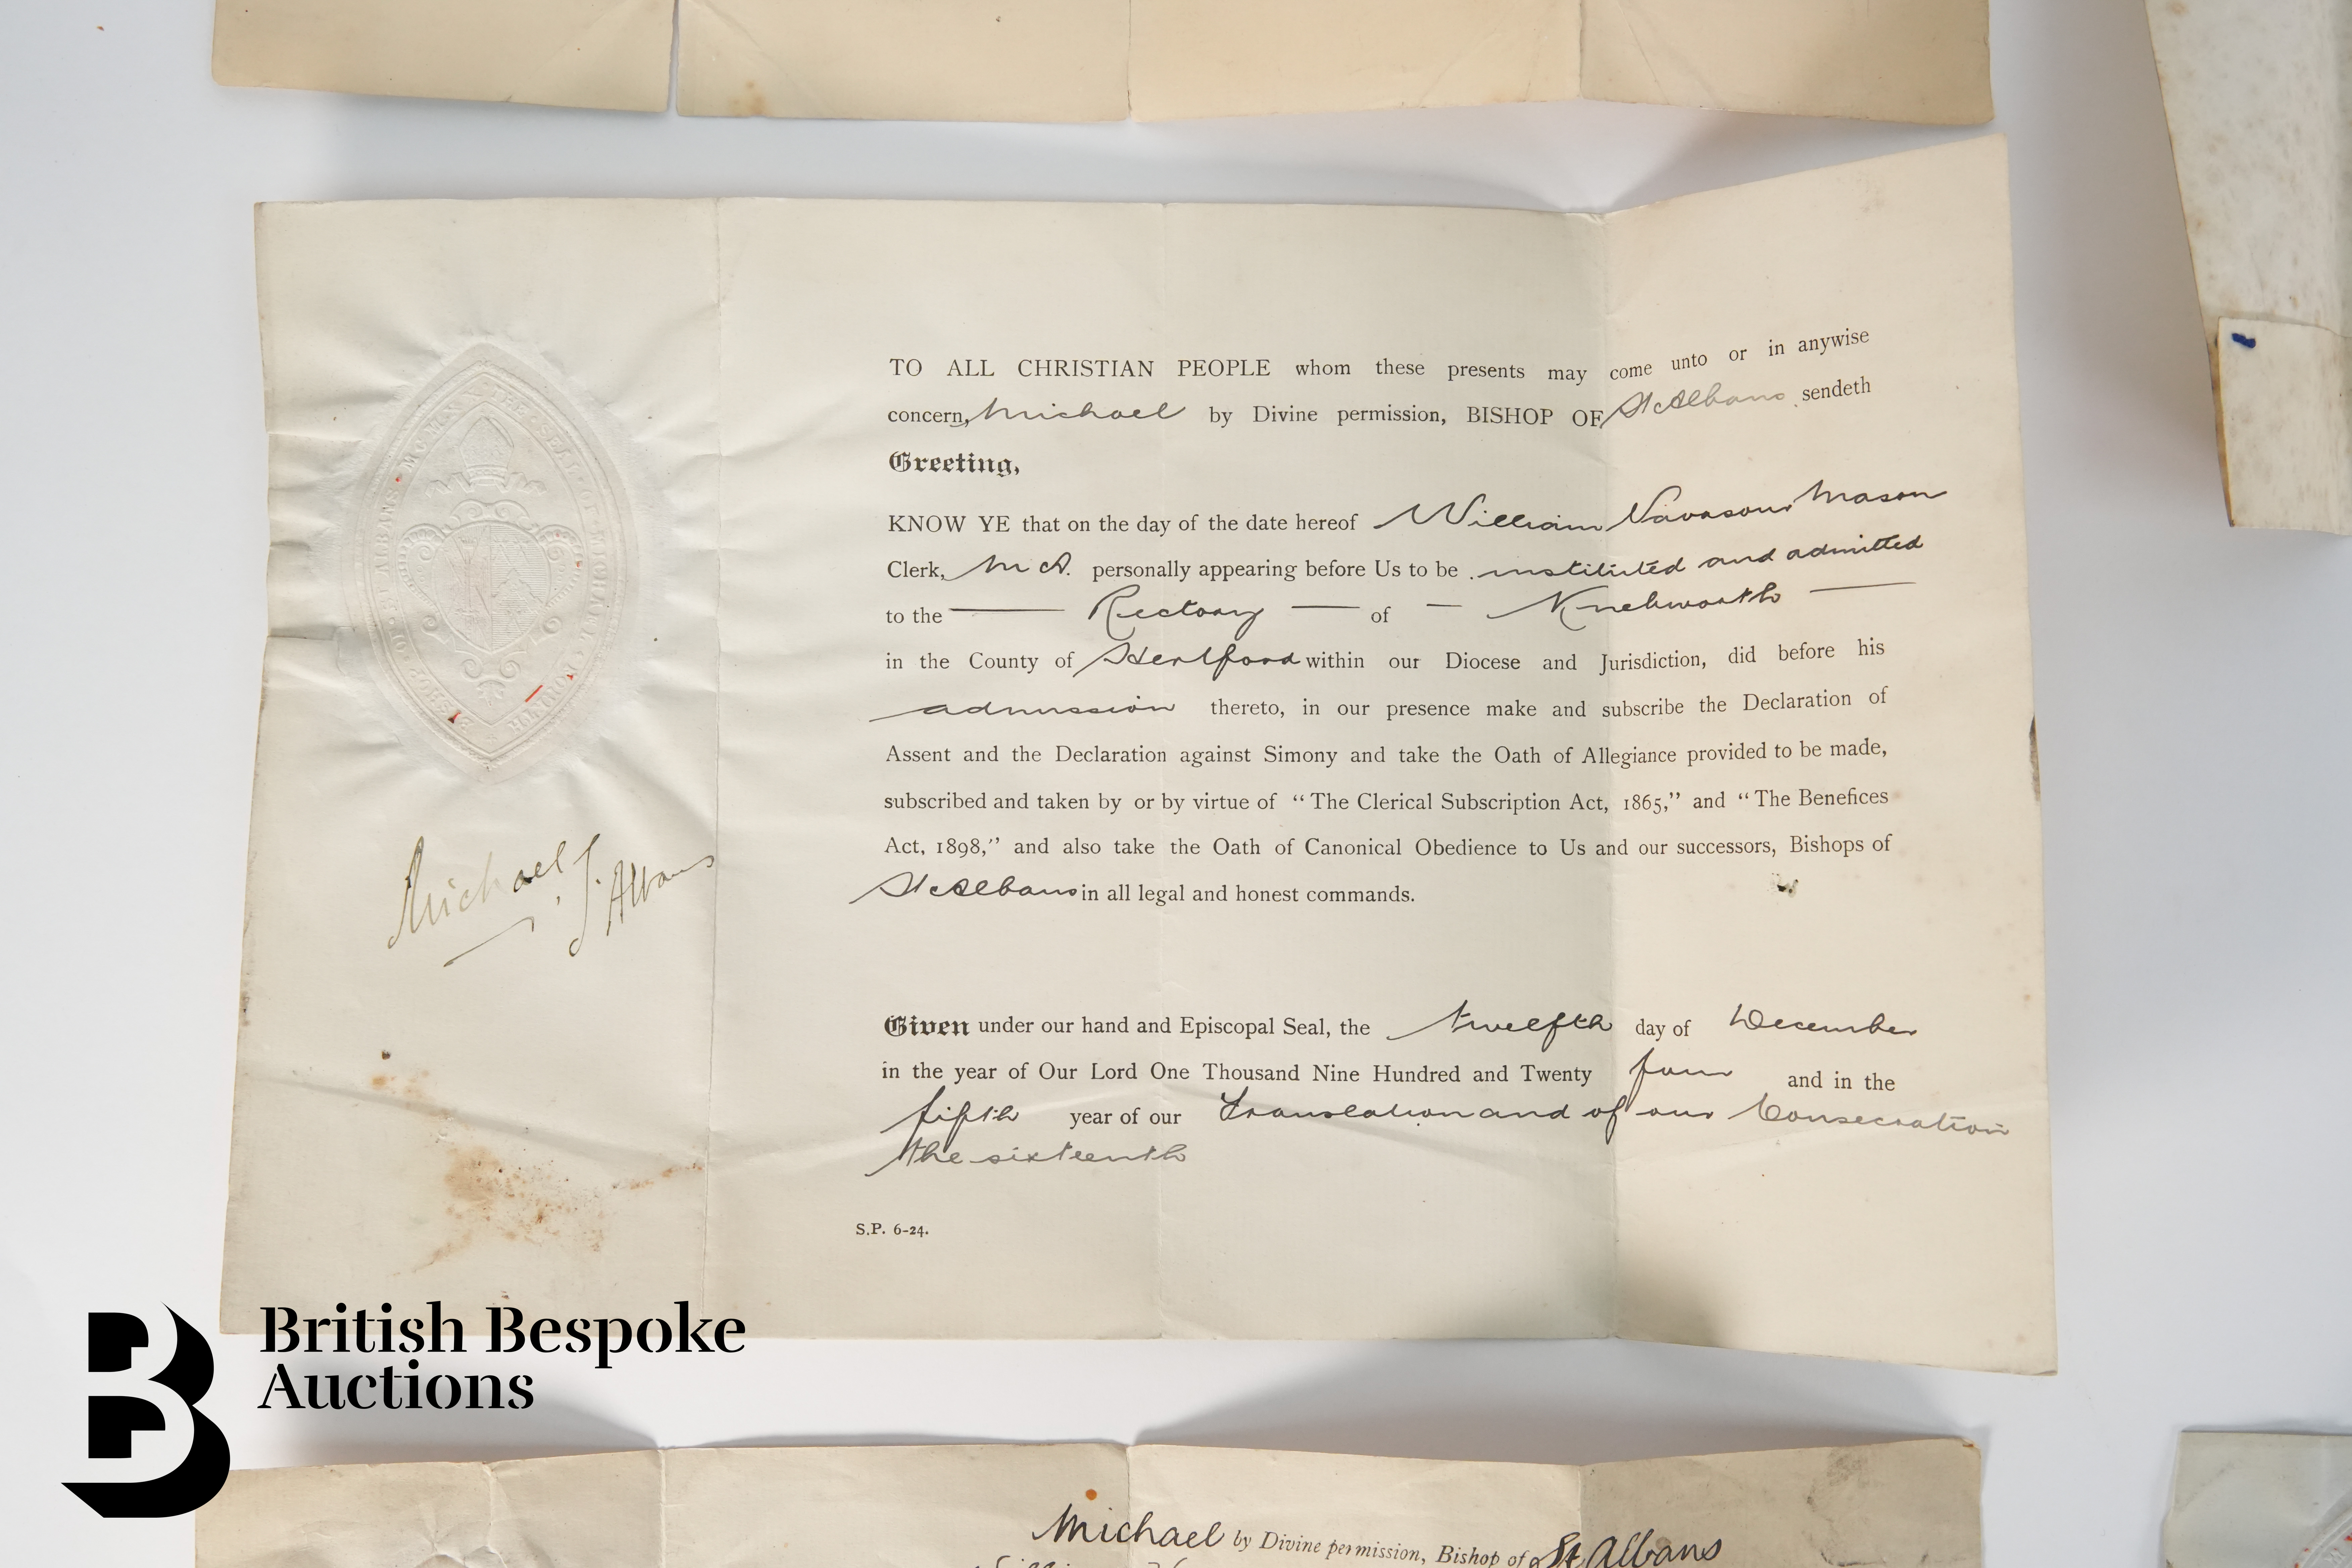 TO ALL CHRISTIAN PEOPLE whom these presents may come unto or in anywise
concern, Michael by Divine permission, BISHOP OF St Albans sendeth
Greeting,
KNOW YE that on the day of the date hereof William Vavasour Mason
Clerk, M A. personally appearing before Us to be instituted and admitted
to the Rectory of Knebworth
in the County of Hertford within our Diocese and Jurisdiction, did before his
admission thereto, in our presence make and subscribe the Declaration of
Assent and the Declaration against Simony and take the Oath of Allegiance provided to be made,
subscribed and taken by or by virtue of "The Clerical Subscription Act, 1865," and "The Benefices
Act, 1898," and also take the Oath of Canonical Obedience to Us and our successors, Bishops of
St Albans in all legal and honest commands.
Michael St. Albans
Given under our hand and Episcopal Seal, the twelfth day of December
in the year of Our Lord One Thousand Nine Hundred and Twenty four and in the
fifth year of our translation and of our Consecration
the sixteenth
S.P. 6-24.
British Bespoke
Auctions
Michael by Divine permission, Bishop of St Albans